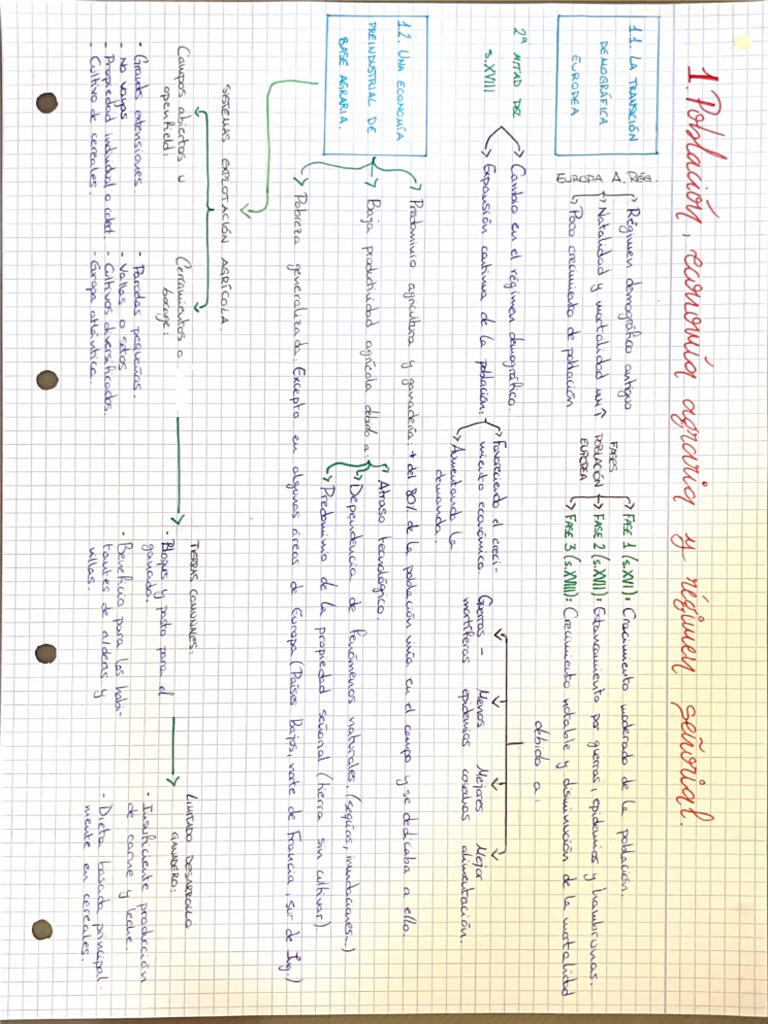 1. Población, economía agraria y régimen señorial.
1.1. LA TRANSICIÓN
DEMOGRÁFICA
EUROPEA
EUROPA A. RÉG.
Régimen demográfico antiguo
Natalidad y mortalidad muy ↑
Poco crecimiento de población
FASES
POBLACIÓN
EUROPEA
FASE 1 (s.XVI): Crecimiento moderado de la población.
FASE 2 (s.XVII): Estancamiento por guerras, epidemias y hambrunas.
FASE 3 (s.XVIII): Crecimiento notable y disminución de la mortalidad
debido a:
2ª MITAD DEL
s.XVIII
Cambio en el régimen demográfico
Expansión continua de la población:
Favoreciendo el creci-
miento económico.
Aumentando la
demanda.
Guerras -
mortíferas
Menos
epidemias
Mejores
cosechas
Mejor
alimentación.
1.2. UNA ECONOMÍA
PREINDUSTRIAL DE
BASE AGRARIA.
Predominio agricultura y ganadería: + del 80% de la población vivía en el campo y se dedicaba a ello.
Baja productividad agrícola debido a:
Atraso tecnológico.
Dependencia de fenómenos naturales. (sequías, inundaciones...)
Predominio de la propiedad señorial (tierra sin cultivar)
Pobreza generalizada. Excepto en algunas áreas de Europa (Países Bajos, norte de Francia, sur de Ing.)
SISTEMAS EXPLOTACIÓN AGRÍCOLA.
Campos abiertos u
openfield:
- Grandes extensiones
- No vallas
- Propiedad individual o colect.
- Cultivo de cereales.
Cerramientos o
bocage:
- Parcelas pequeñas.
- Vallas o setos
- Cultivos diversificados.
- Europa atlántica.
TIERRAS COMUNALES:
- Bosques y pasto para el
ganado.
- Beneficio para los habi-
tantes de aldeas y
villas.
LIMITADO DESARROLLO
GANADERO:
- Insuficiente producción
de carne y leche.
- Dieta basada principal-
mente en cereales.